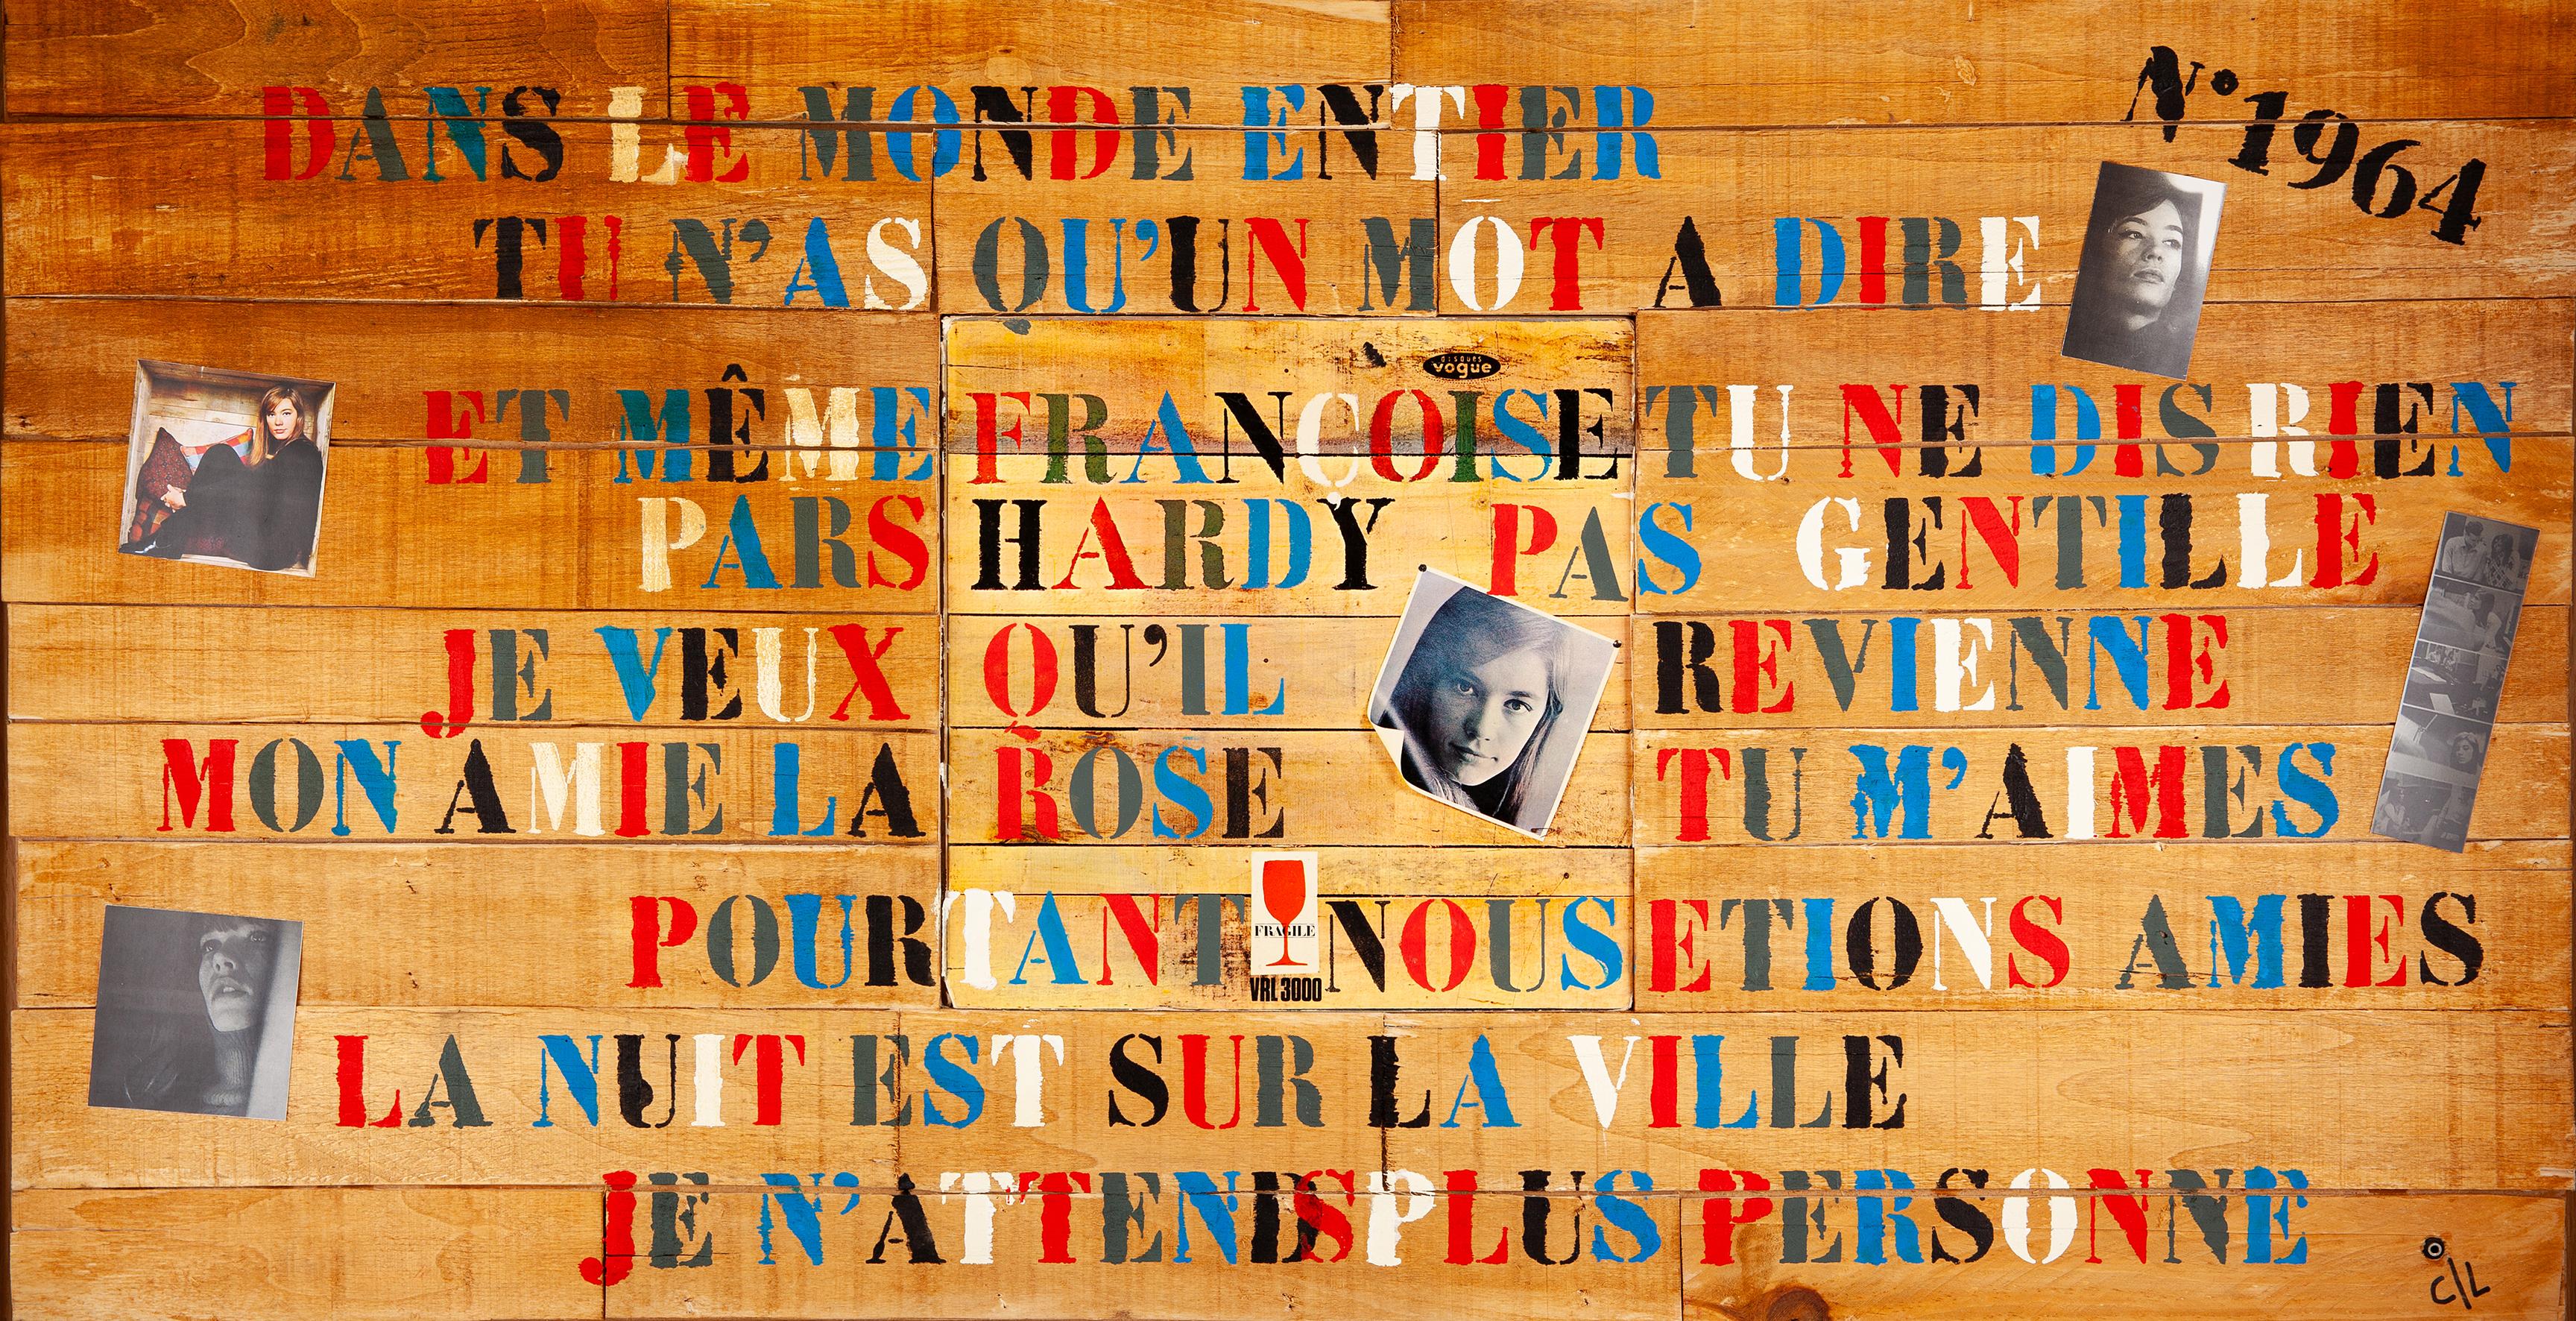 N° 1964
DANS LE MONDE ENTIER
TU N'AS QU'UN MOT A DIRE
disques
vogue
ET MÊME FRANÇOISE TU NE DIS RIEN
PARS HARDY PAS GENTILLE
JE VEUX QU'IL REVIENNE
MON AMIE LA ROSE TU M'AIMES
POURTANT NOUS ETIONS AMIES
FRAGILE
VRL 3000
LA NUIT EST SUR LA VILLE
JE N'ATTENDS PLUS PERSONNE
C/L